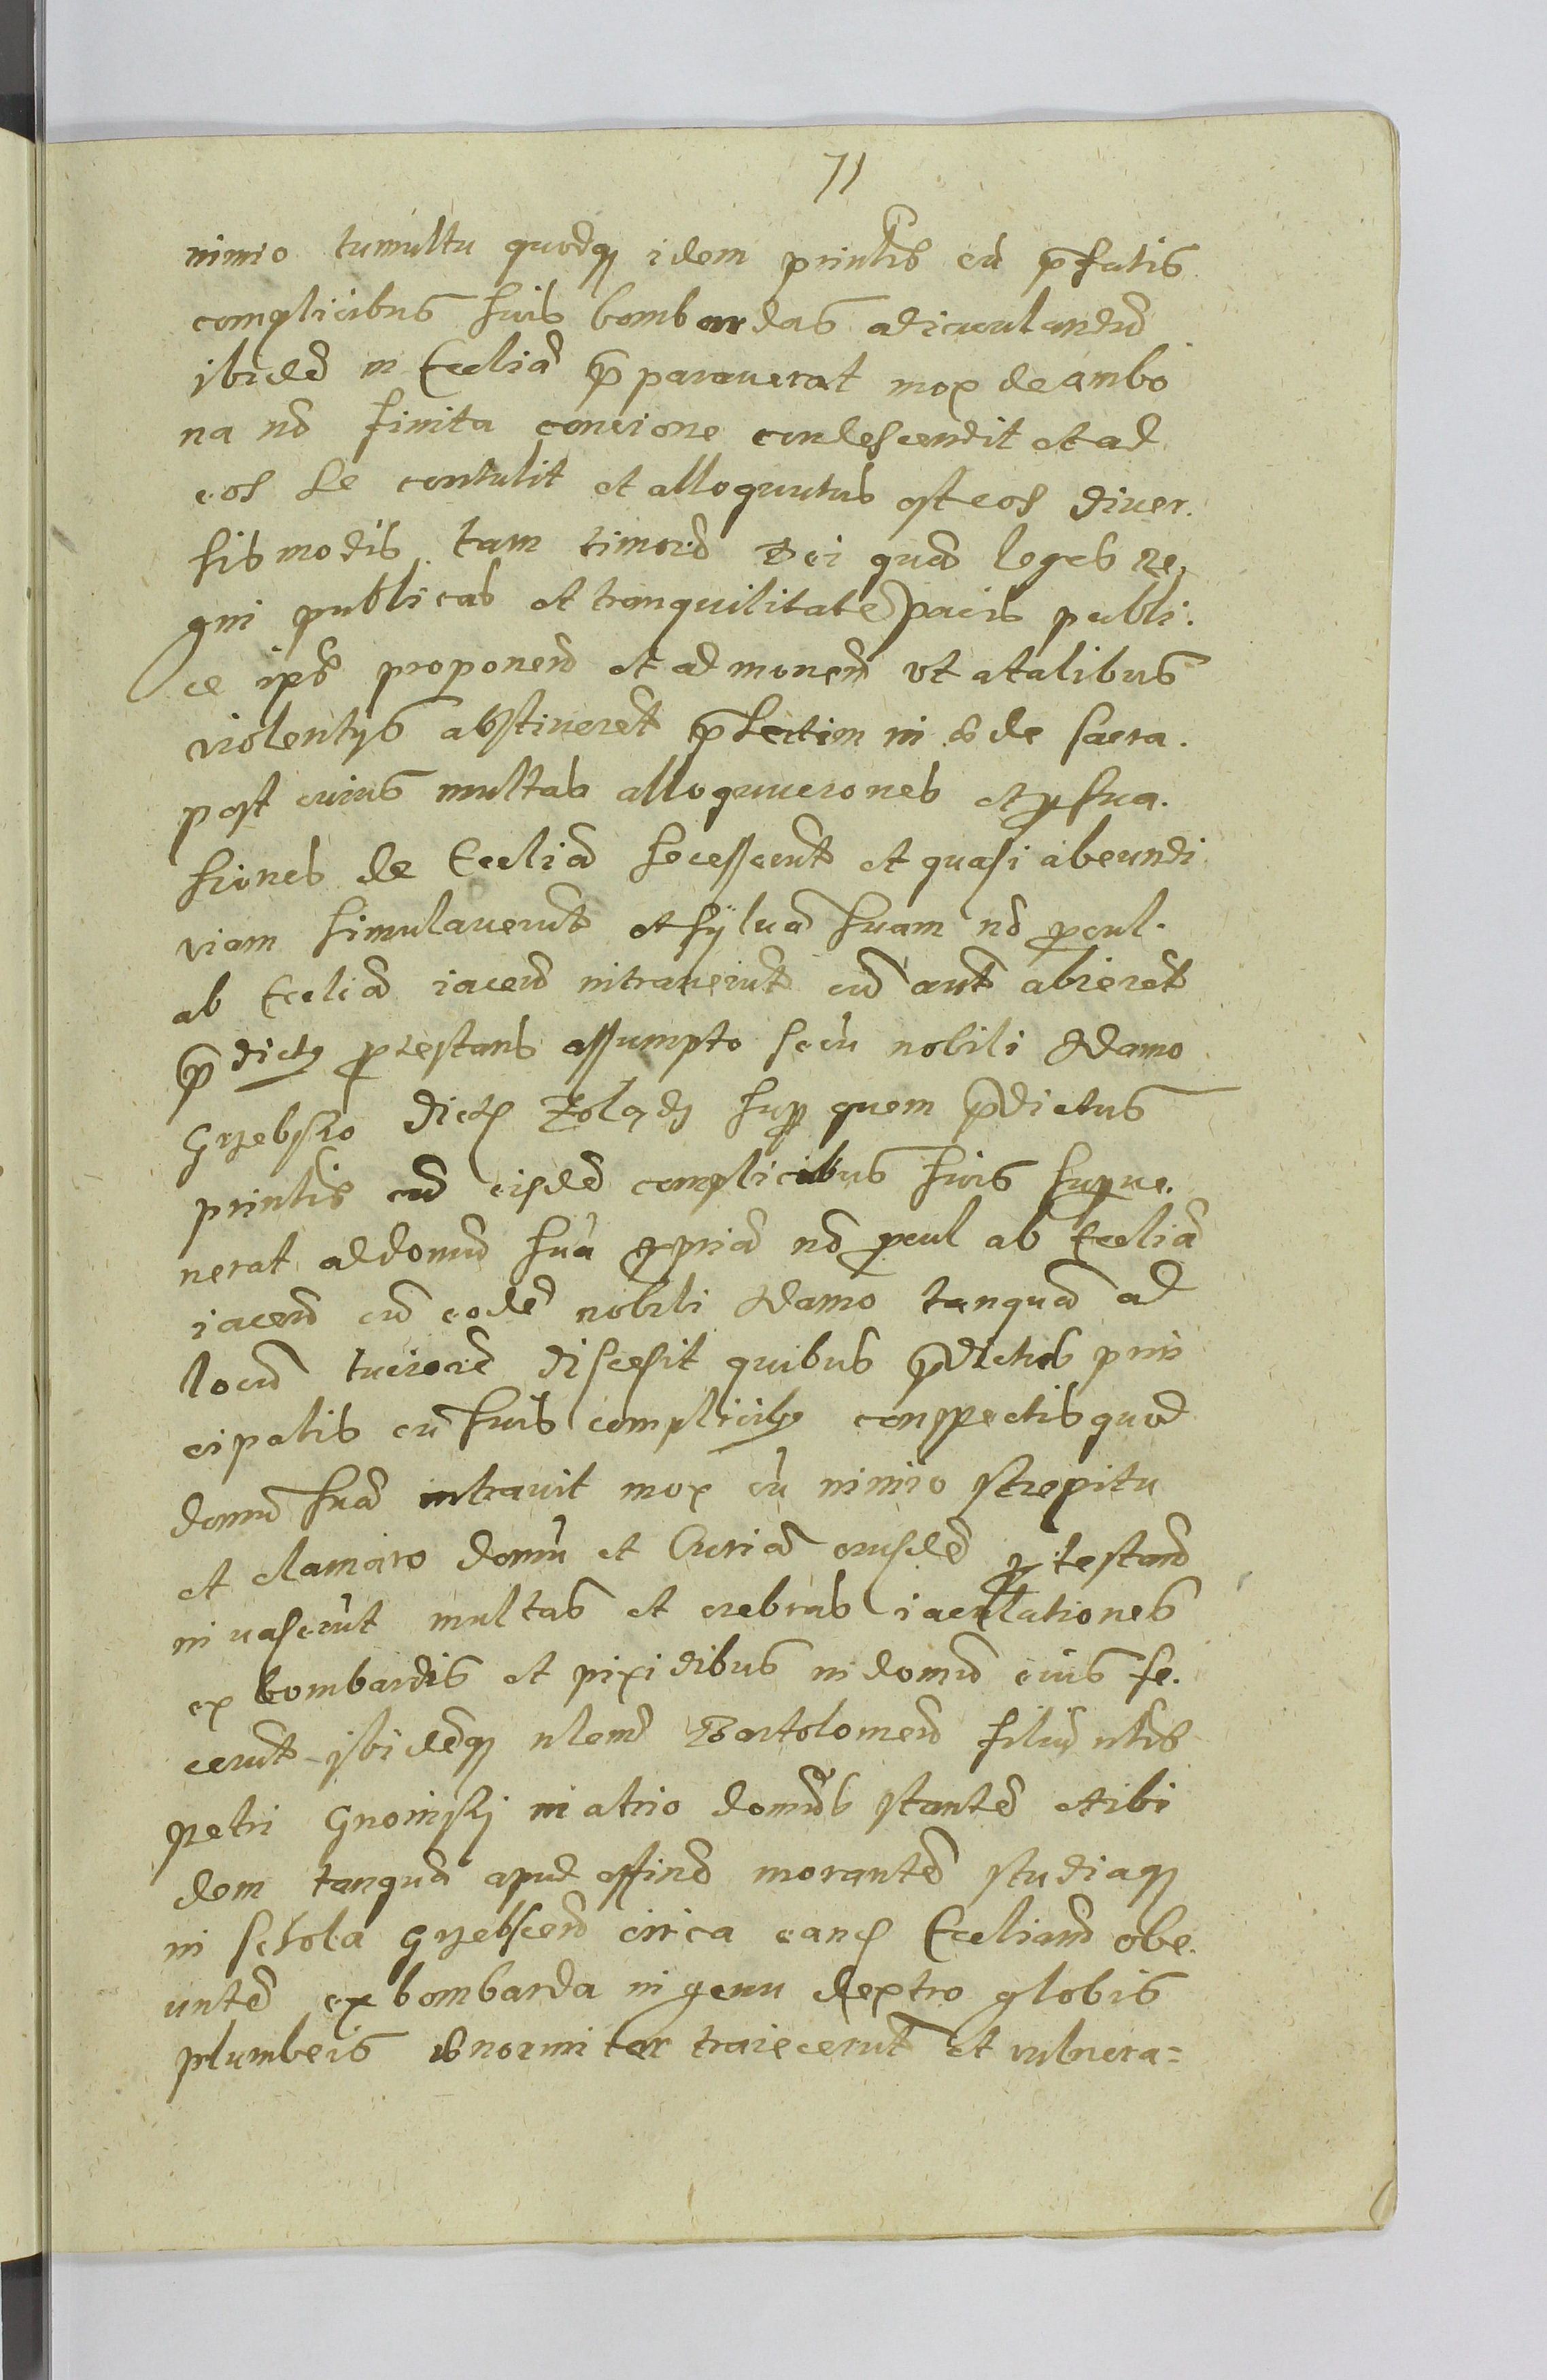 71
nimio tumultu quodq idem prinlis cu p̄fatis
complicibus suis bombardas adiaculandu
ibidē in Eccliā p̄paraverat mox de ambo
na nō finita concione condescendit et ad
eos se contulit et alloquutus est eos diver.
sis modis tam timorē Dei quā leges re,
gni publicas et tranquilitatē pacis publi.
ce ips proponend et admonend ut a talibus
violentys abstinerēt p̄sertim in æde sacra.
post cuius multas alloquuciones et psua.
siones de Eccliā secesserūt et quasi abeundi
viam simulaverūt et sylvā suam nō procul.
ab Eccliā iacend intraverūt cū aūt abierēt
p̄dicty protestans assumpto secu nobili Adamo
Grzebsko dicto Zolądz sup quem p̄dictus
prinlis cū eisdē complicibus suis supve.
nerat ad domū suā ppriā nō procul ab Eccliā
iacend cū eodē nobili Adamo tanquā ad
locū tuciorē discesit quibus p̄dictus prin
cipalis cū suis complicib9 conspectis quod
domū suā intravit mox cū nimio strepitu
et clamoro domū et Curiā eiusdē protestand
invaserūt multas et crebras iaculationes
ex bombardis et pixidibus in domū eius fe.
cerūt ibidēq nlem Bartolomeū filiū nlis
Petri Gnoinski in atrio domūs stantē et ibi
dem tanquā apud affinē morantē studiaq
in schola Grzebscend circa eand Eccliam obe.
untē ex bombarda in genu dextro globis
plumbeis enormiter traiecerūt et vulnera=